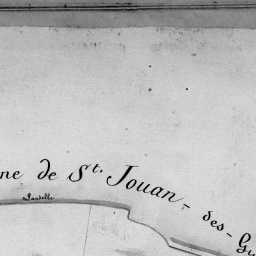 ne de St. Jouan-des-Gu